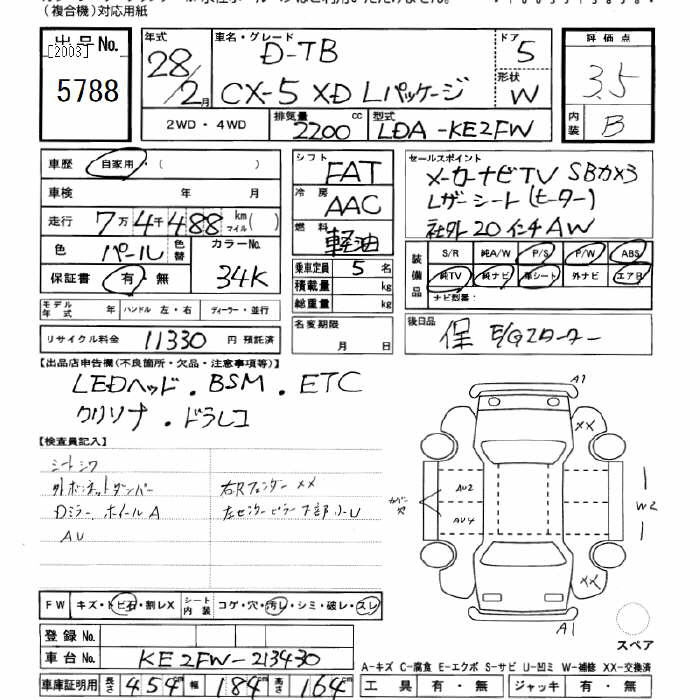 (複合機)対応用紙
出品No.
[2003]
5788
年式 28/2月
車名・グレード D-TB
CX-5 XD Lパッケージ
ドア 5
形状 W
評価点
3.5
内装 B
2WD・4WD
排気量 2200 cc
型式 LDA-KE2FW
車歴 自家用・( )
車検 年 月
走行 7万4千488 km マイル( )
色 パール 色替
カラーNo. 34K
保証書 有・無
モデル年式 年 ハンドル 左・右 ディーラー・並行
リサイクル料金 11330 円 預託済
シフト FAT
冷房 AAC
燃料 軽油
乗車定員 5 名
積載量 kg
総重量 kg
名変期限
月 日
セールスポイント
メーカーナビTV SBカメラ
Lザーシート(ヒーター)
社外20インチAW
装備品
S/R 純A/W P/S P/W ABS
純TV 純ナビ 革シート 外ナビ エアB
ナビ型番:
後日品
保 E/Gスターター
【出品店申告欄(不良箇所・欠品・注意事項等)】
LEDヘッド.BSM.ETC
クリソナ.ドラレコ
【検査員記入】
シートシワ
外ボンネットダンパー 右Rフェンダー XX
Dミラー、ホイールA
AU
A1
XX
AU2
AU4
カバー
W2
XX
A1
スペア
FW キズ・トビ石・割レX
シート内装 コゲ・穴・汚レ・シミ・破レ・スレ
登録No.
車台No. KE2FW-213430
車庫証明用 長さ 454 cm 幅 184 cm 高さ 164 cm
A-キズ C-腐食 E-エクボ S-サビ U-凹ミ W-補修 XX-交換済
工具 有・無 ジャッキ 有・無